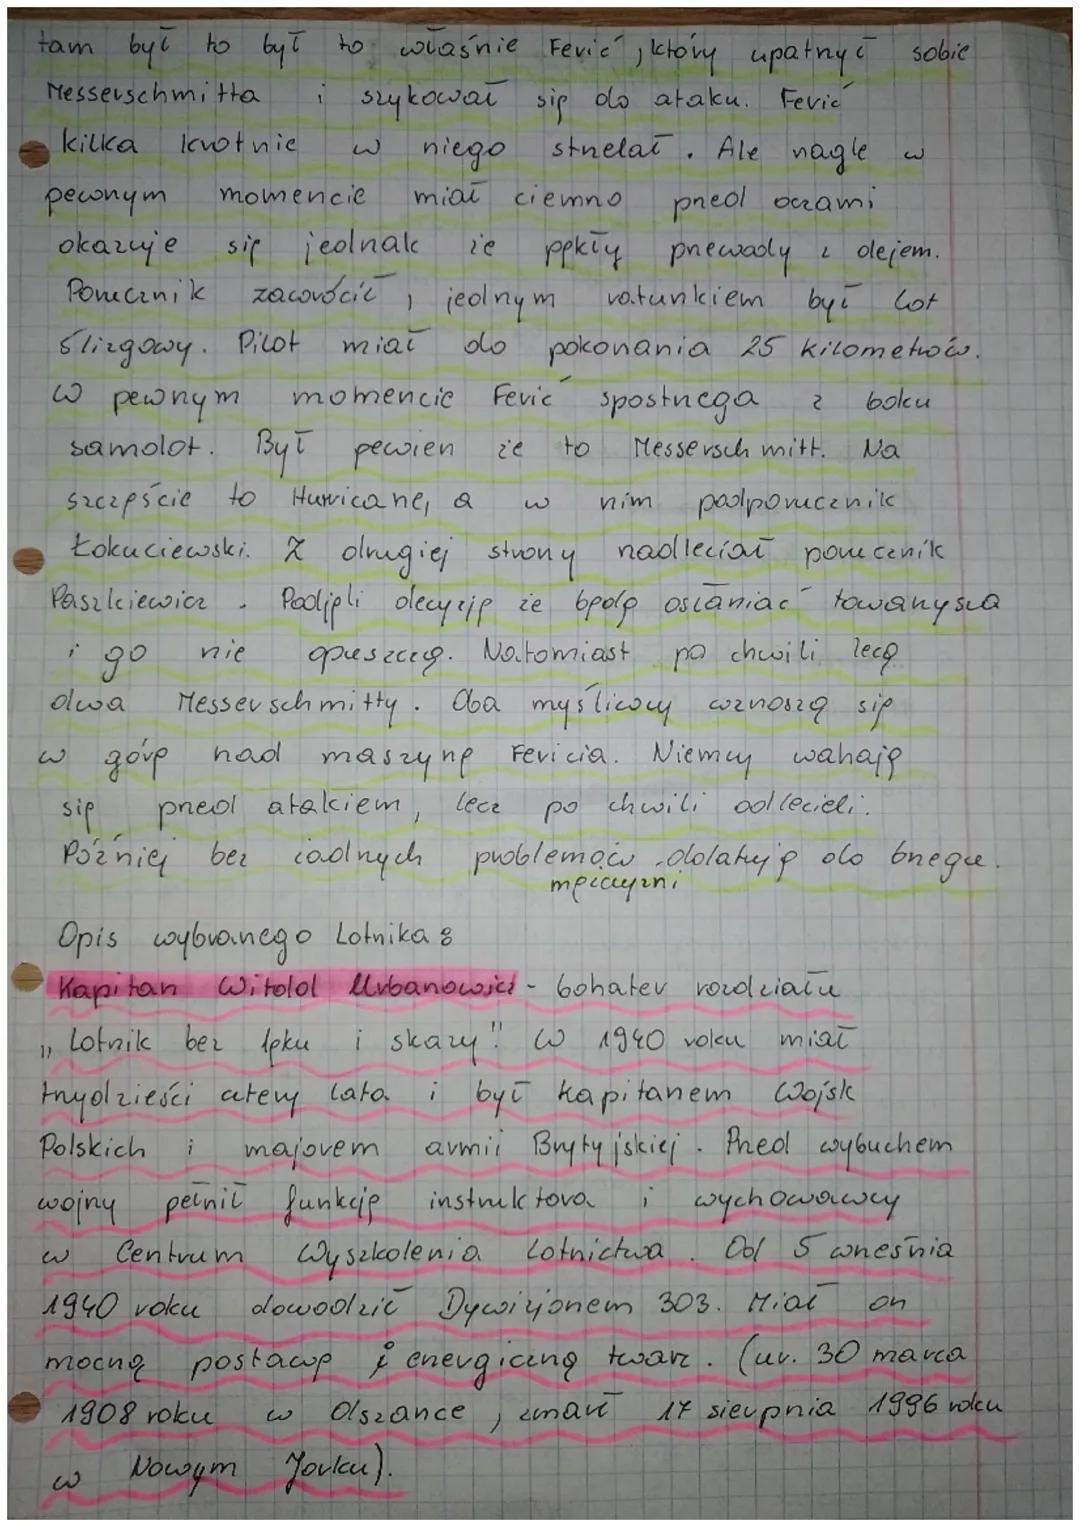 tam był to był to właśnie Ferić, który upatrzył sobie
Messerschmitta i szykował się do ataku. Ferić
kilka krotnie w niego strzelał. Ale nagle w
pewnym momencie miał ciemno przed oczami
okazuje się jednak że pękły przewady z olejem.
Porucznik zawrócił, jedynym ratunkiem był lot
ślizgowy. Pilot miał do pokonania 25 kilometrów.
W pewnym momencie Ferić spostrzega z boku
samolot. Był pewien że to Messerschmitt. Na
szczęście to Hurricane, a w nim podporucznik
Łokuciewski. Z drugiej strony nadleciał porucznik
Paszkiewicz. Podjęli decyzję że będą osłaniać towarzysza
i go nie opuszczą. Natomiast po chwili lecą
dwa Messerschmitty. Oba myśliwcy wznoszą się
w górę nad maszynę Fericia. Niemcy wahają
się przed atakiem, lecz po chwili odlecieli.
Później bez żadnych problemów dolatują do brzegu.
mężczyźni
Opis wybranego Lotnika:
Kapitan Witold Urbanowicz - bohater rozdziału
„Lotnik bez lęku i skazy". W 1940 roku miał
trzydzieści cztery lata i był kapitanem Wojsk
Polskich i majorem armii Brytyjskiej. Przed wybuchem
wojny pełnił funkcję instruktora i wychowawcy
w Centrum Wyszkolenia Lotnictwa. Od 5 września
1940 roku dowodził Dywizjonem 303. Miał on
mocną postawę i energiczną twarz. (ur. 30 marca
1908 roku w Olszance, zmarł 17 sierpnia 1996 roku
w Nowym Jorku).